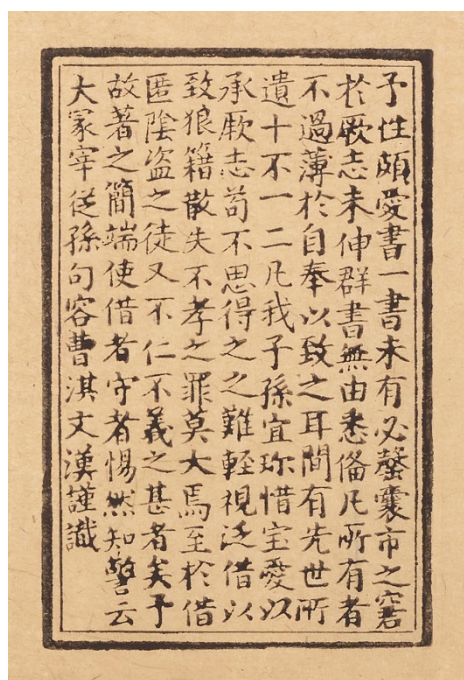 予性頗愛書一書未有必罄囊市之窘
於厥志未伸群書無由悉俻凢所有者
不過薄於自奉以致之耳間有先世所
遺十不一二凢我子孫宜珎惜宝愛以
承厥志苟不思得之之難輕視泛借以
致狼籍散失不孝之罪莫大焉至於借
匿陰盗之徒又不仁不義之甚者矣予
故著之簡端使借者守者惕然知警云
大冢宰従孫句容曹淇文漢謹識